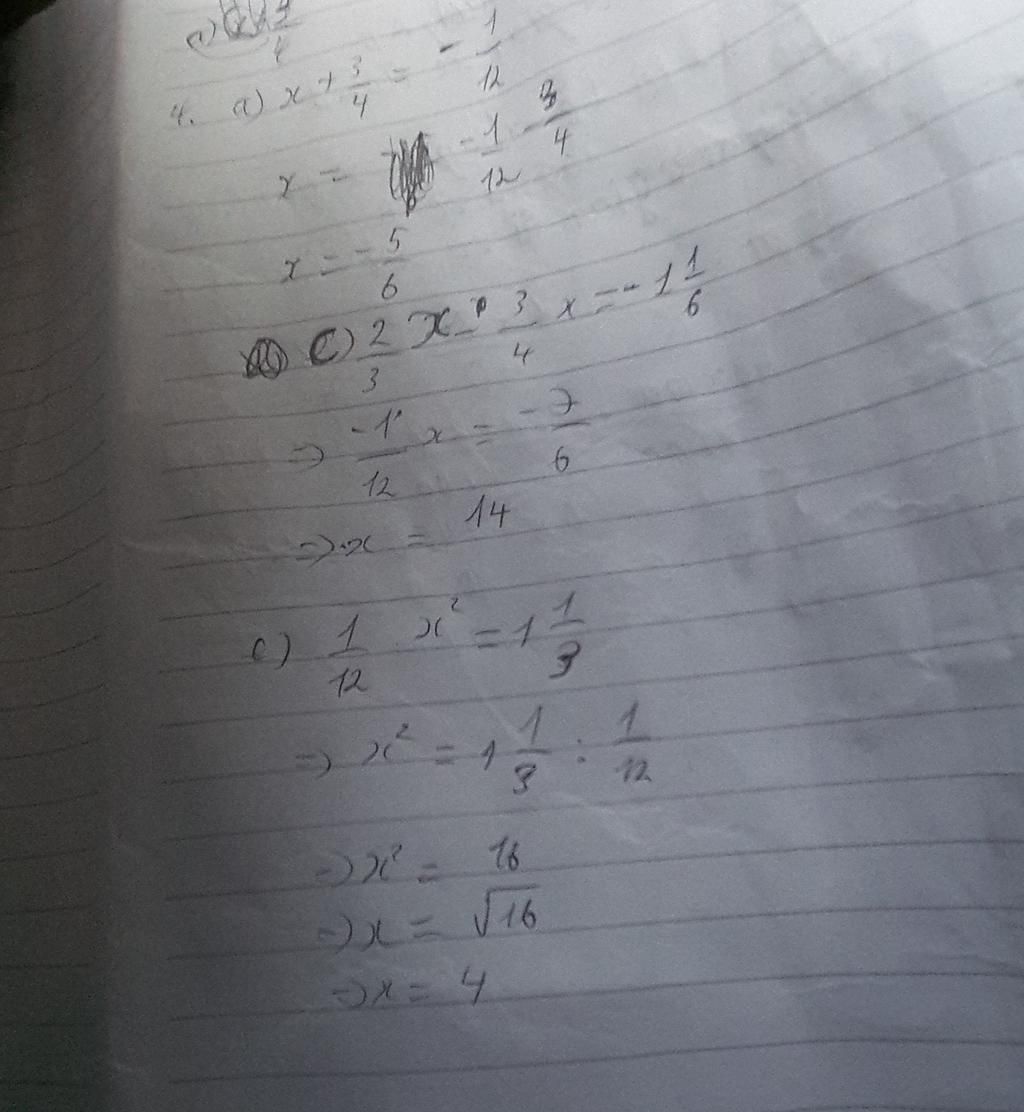 4. a) x + 3/4 = - 1/12
x = - 1/12 - 3/4
x = - 5/6
c) 2/3 x - 3/4 x = - 1 1/6
=> -1/12 x = - 7/6
=> x = 14
e) 1/12 x² = 1 1/3
=> x² = 1 1/3 : 1/12
=> x² = 16
=> x = √16
=> x = 4